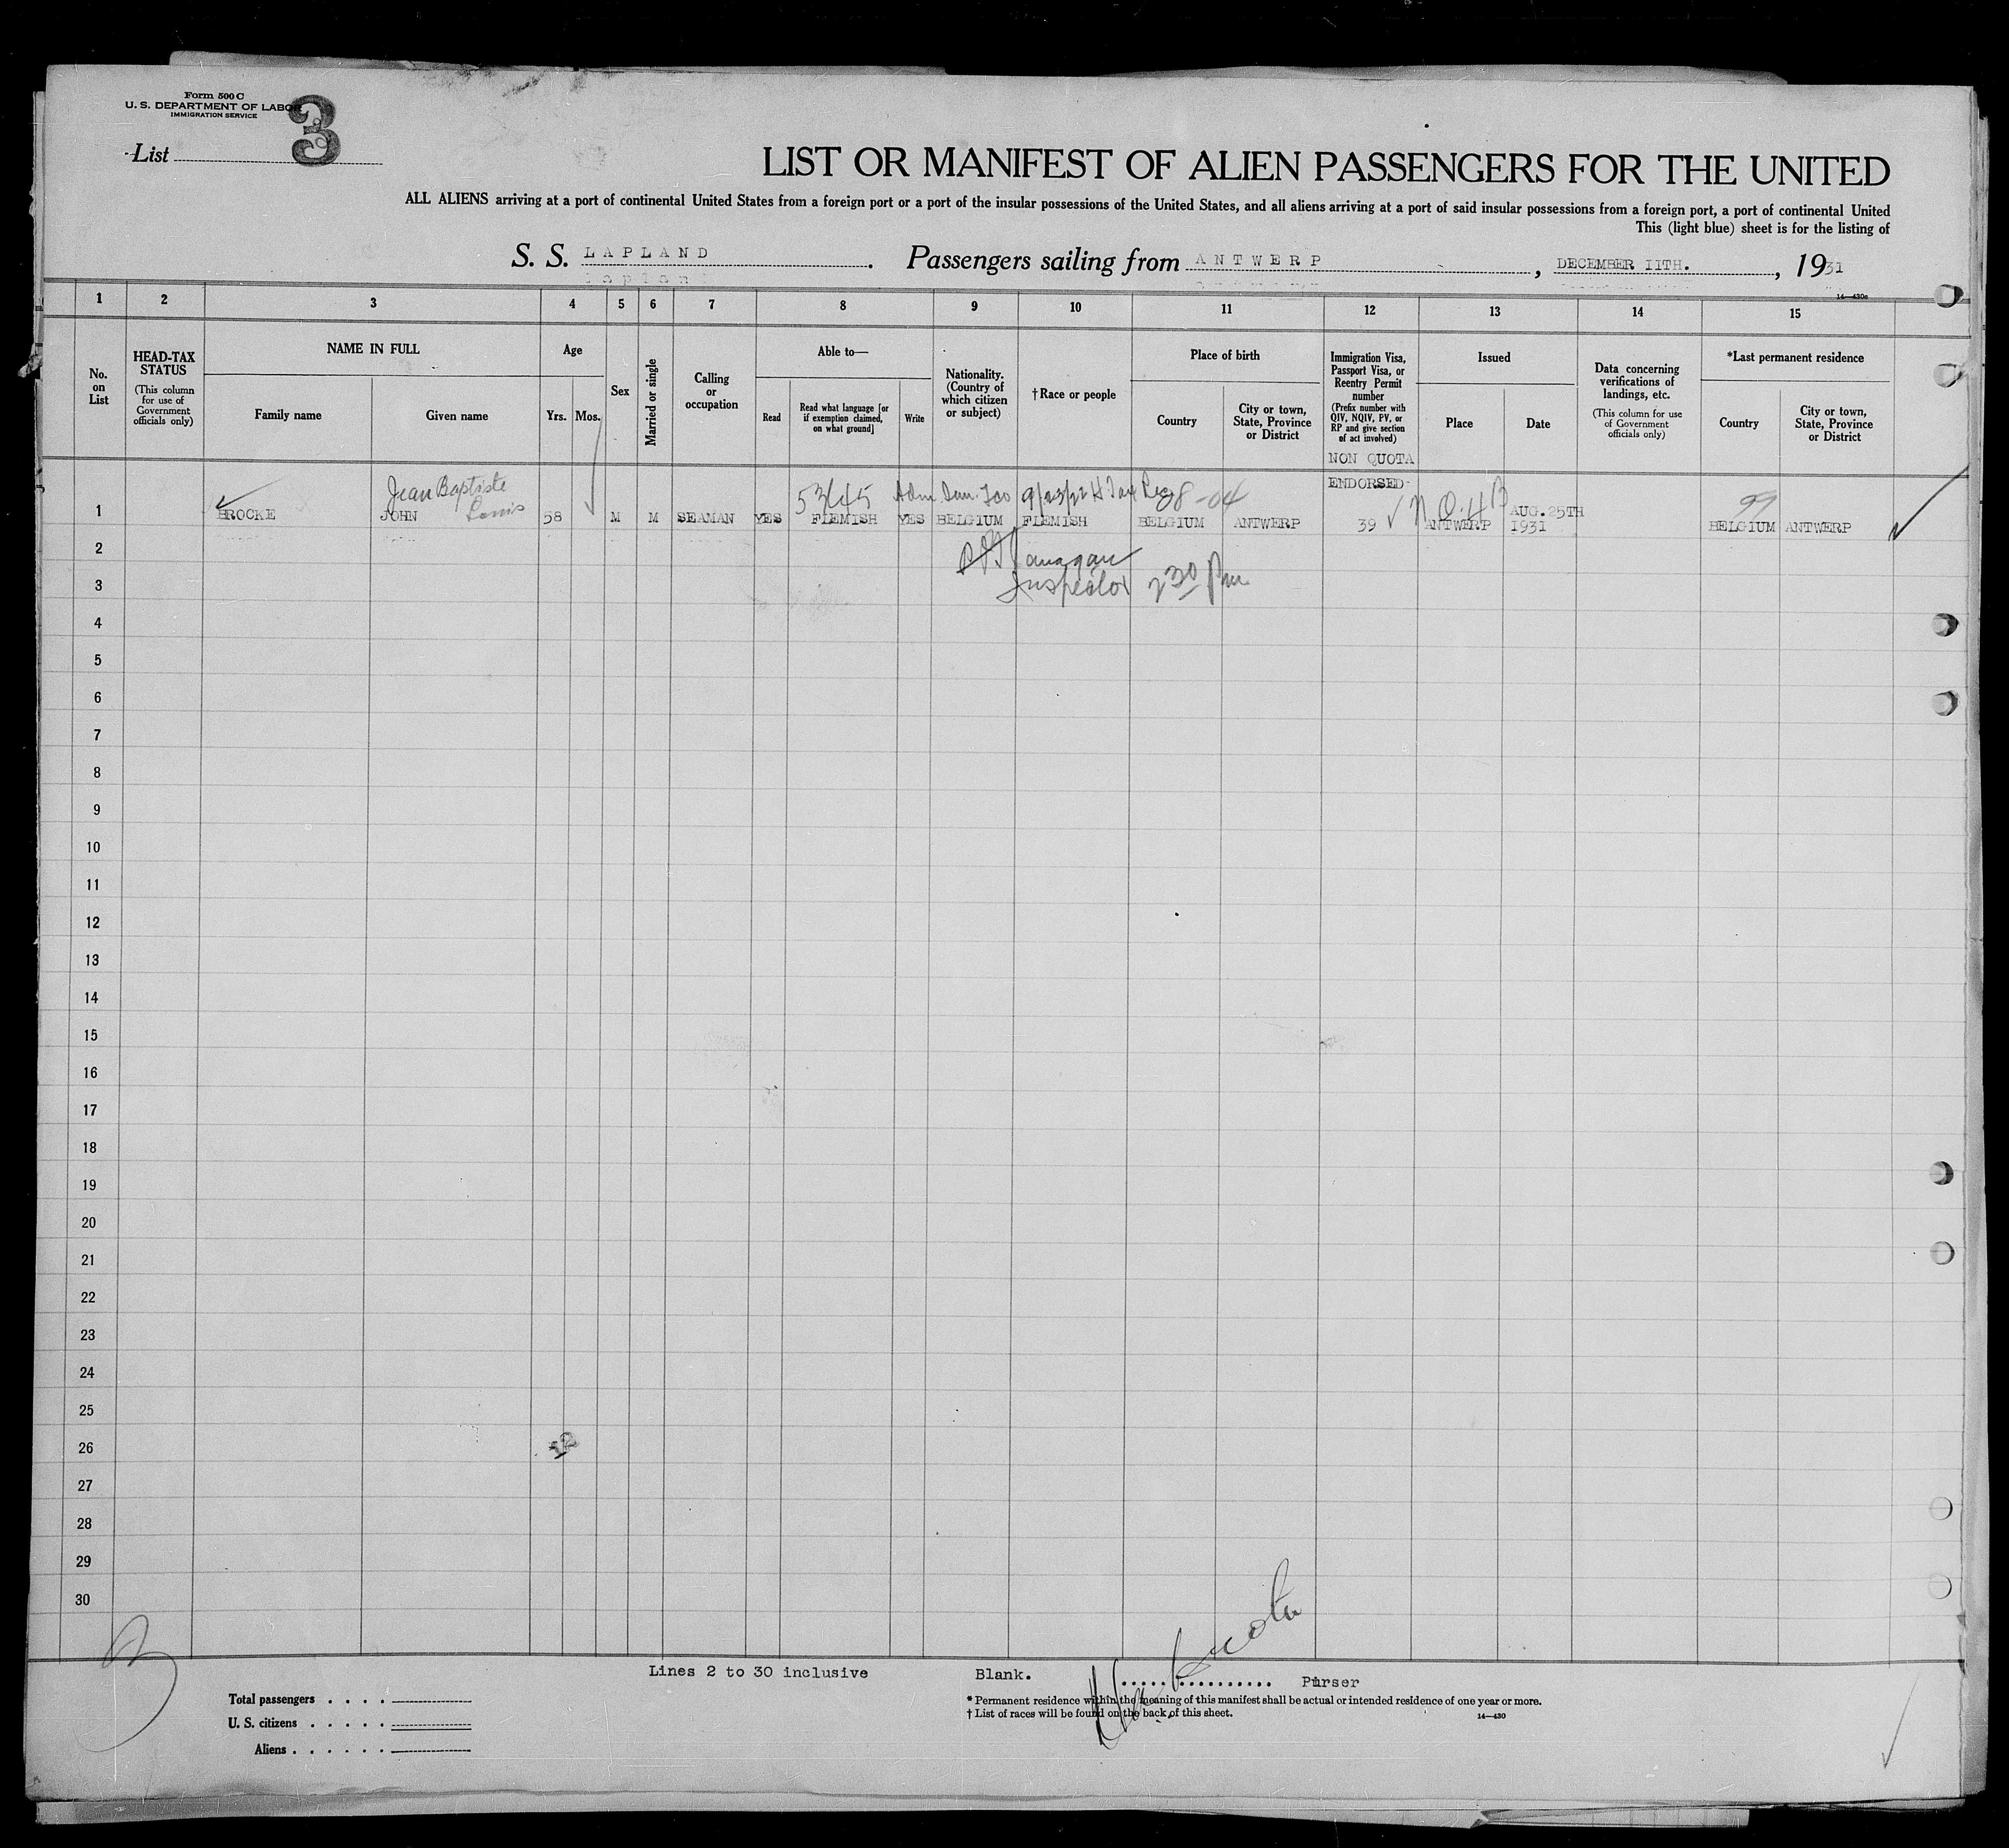 Form 500 C
U. S. DEPARTMENT OF LABOR
IMMIGRATION SERVICE
List 3
LIST OR MANIFEST OF ALIEN PASSENGERS FOR THE UNITED
ALL ALIENS arriving at a port of continental United States from a foreign port or a port of the insular possessions of the United States, and all aliens arriving at a port of said insular possessions from a foreign port, a port of continental United
This (light blue) sheet is for the listing of
S. S. LAPLAND. Passengers sailing from ANTWERP, DECEMBER 11TH., 1931
14—430a
1 2 3 4 5 6 7 8 9 10 11 12 13 14 15
No. on List
HEAD-TAX STATUS
(This column for use of Government officials only)
NAME IN FULL
Family name
Given name
Age
Yrs. Mos.
Sex
Married or single
Calling or occupation
Able to—
Read
Read what language [or if exemption claimed, on what ground]
Write
Nationality. (Country of which citizen or subject)
†Race or people
Place of birth
Country
City or town, State, Province or District
Immigration Visa, Passport Visa, or Reentry Permit number
(Prefix number with QIV, NQIV, PV, or RP and give section of act involved)
NON QUOTA
Issued
Place
Date
Data concerning verifications of landings, etc.
(This column for use of Government officials only)
*Last permanent residence
Country
City or town, State, Province or District
Jean Baptiste Louis
53/445 9/23/22 H Tax 28-04 ENDORSED N.Q.4B 99
1 BROCKE JOHN 58 M M SEAMAN YES FLEMISH YES BELGIUM FLEMISH BELGIUM ANTWERP 39 ANTWERP AUG.25TH 1931 BELGIUM ANTWERP
2
Inspector 2 30 Pm
3
4
5
6
7
8
9
10
11
12
13
14
15
16
17
18
19
20
21
22
23
24
25
26
27
28
29
30
3
Lines 2 to 30 inclusive Blank.
Purser
Total passengers
U. S. citizens
Aliens
* Permanent residence within the meaning of this manifest shall be actual or intended residence of one year or more.
† List of races will be found on the back of this sheet.
14—430